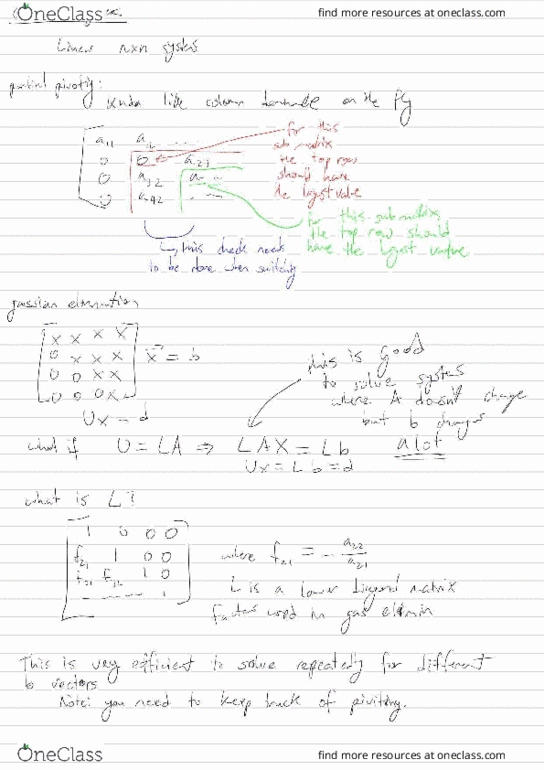 OneClass
find more resources at oneclass.com
Linear nxn systems
partial pivoting:
Kinda like column on the fly
a11 a12 ...
0 0 a23
0 a32 a
0 a42 . -
for this
sub matrix
the top row
should have
the largest value
for this submatrix
the top row should
have the largest value
↳ this check needs
to be done when switching
gaussian elimination
x x x x
0 x x x
0 0 x x
0 0 0 x
x⃗ = b
Ux = d
this is good
to solve systems
where A doesn't change
but b changes
a lot
what if U = LA ⇒ LAX = Lb
Ux = Lb = d
what is L?
1 0 0 0
f21 1 0 0
f31 f32 1 0
- - - - 1
where f21 = - a22 / a21
L is a lower diagonal matrix
factors used in gas elimin
This is very efficient to solve repeatedly for different
b vectors
Note: you need to keep track of pivoting.
OneClass
find more resources at oneclass.com